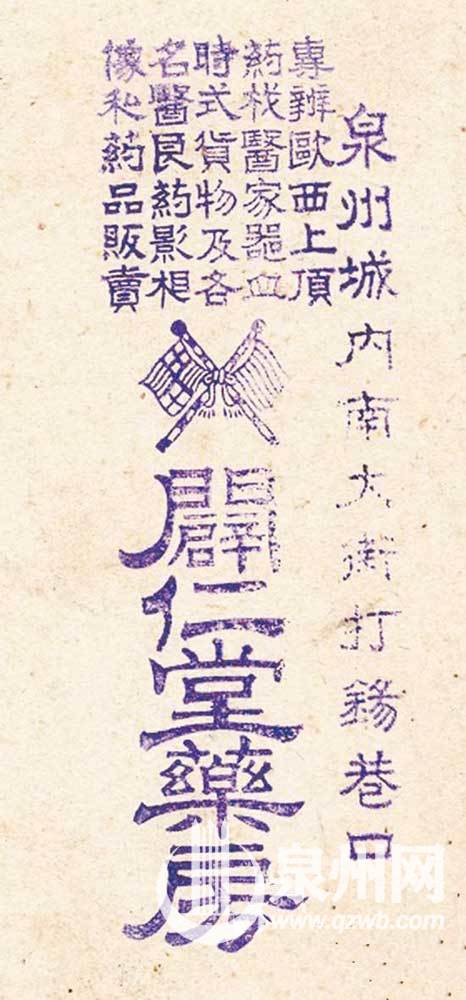 泉州城內南大街打錫巷口
專辦歐西上頂
葯栈醫家器血
時式貨物及各
名醫良葯影相
像私葯品販賣
闢仁堂藥房
泉州网
www.qzwb.com